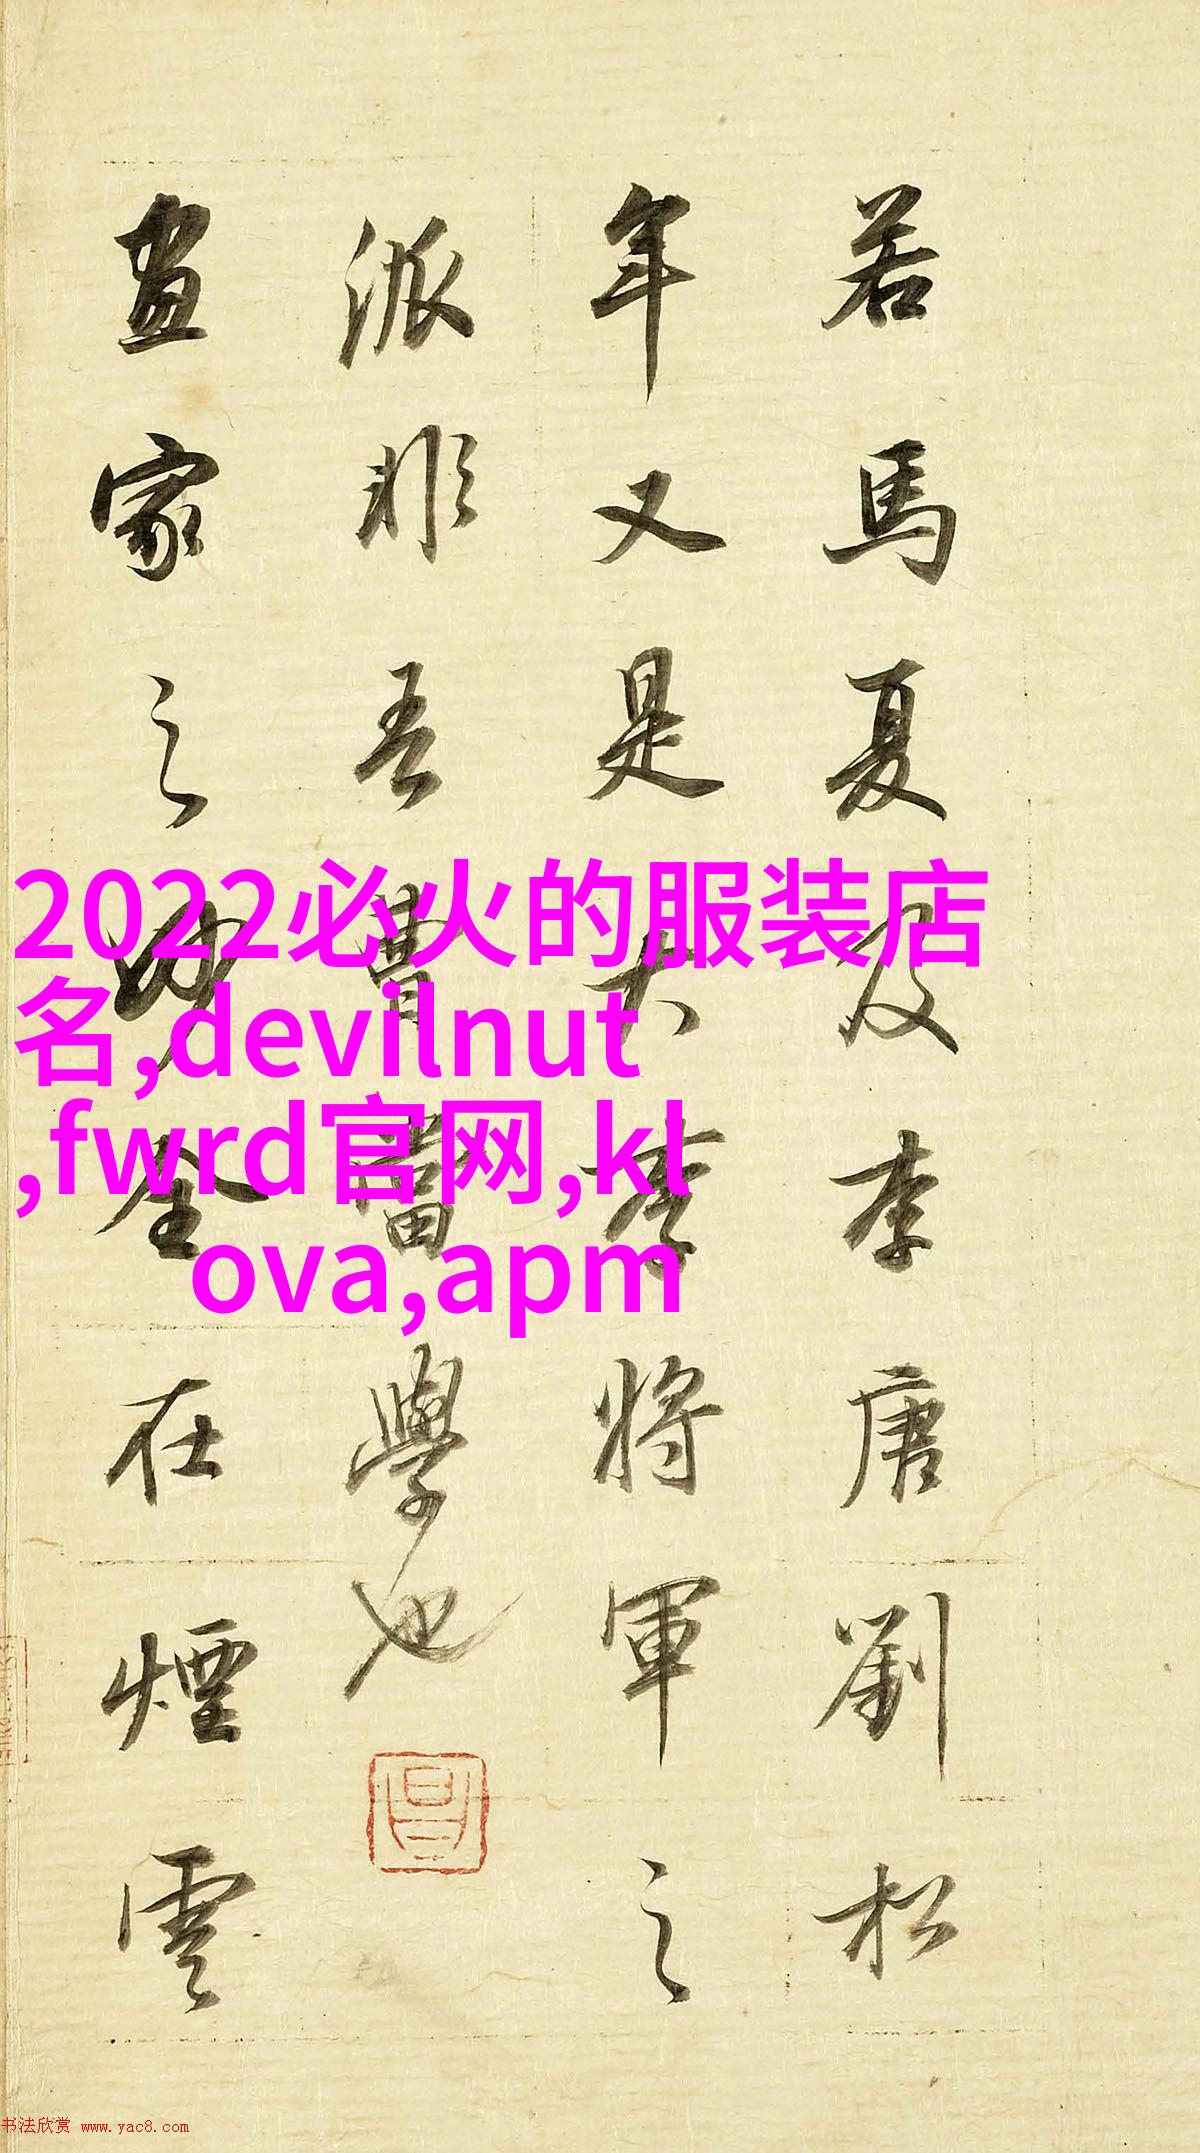 若馬夏及李唐劉松
年又是大李將軍之
派非吾曹當學也
畫家之妙全在煙雲
2022必火的服装店
名,devilnut
,fwrd官网,kl
ova,apm
书法欣赏 www.yac8.com